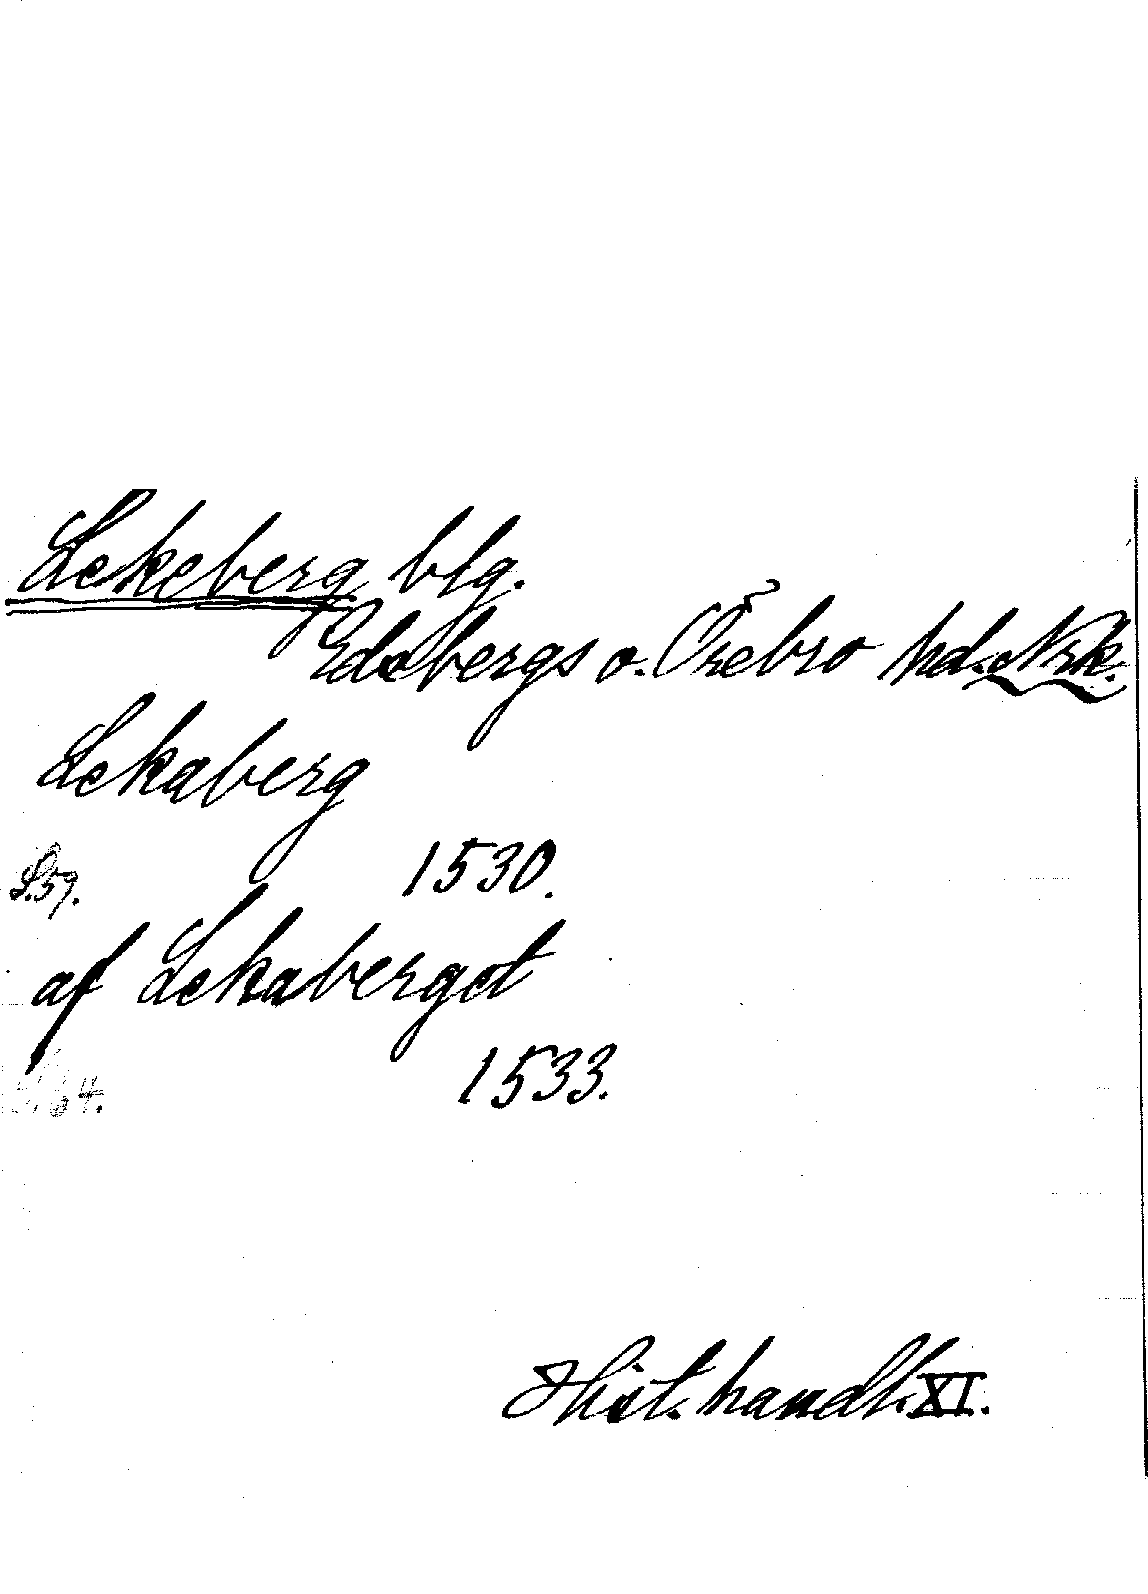 Lekeberg blg.
Edsbergs o. Örebro hd. Nrk.
Lekaberg
S. 59. 1530.
af Lekaberget
S. 64. 1533.
Hist. handl. XI.